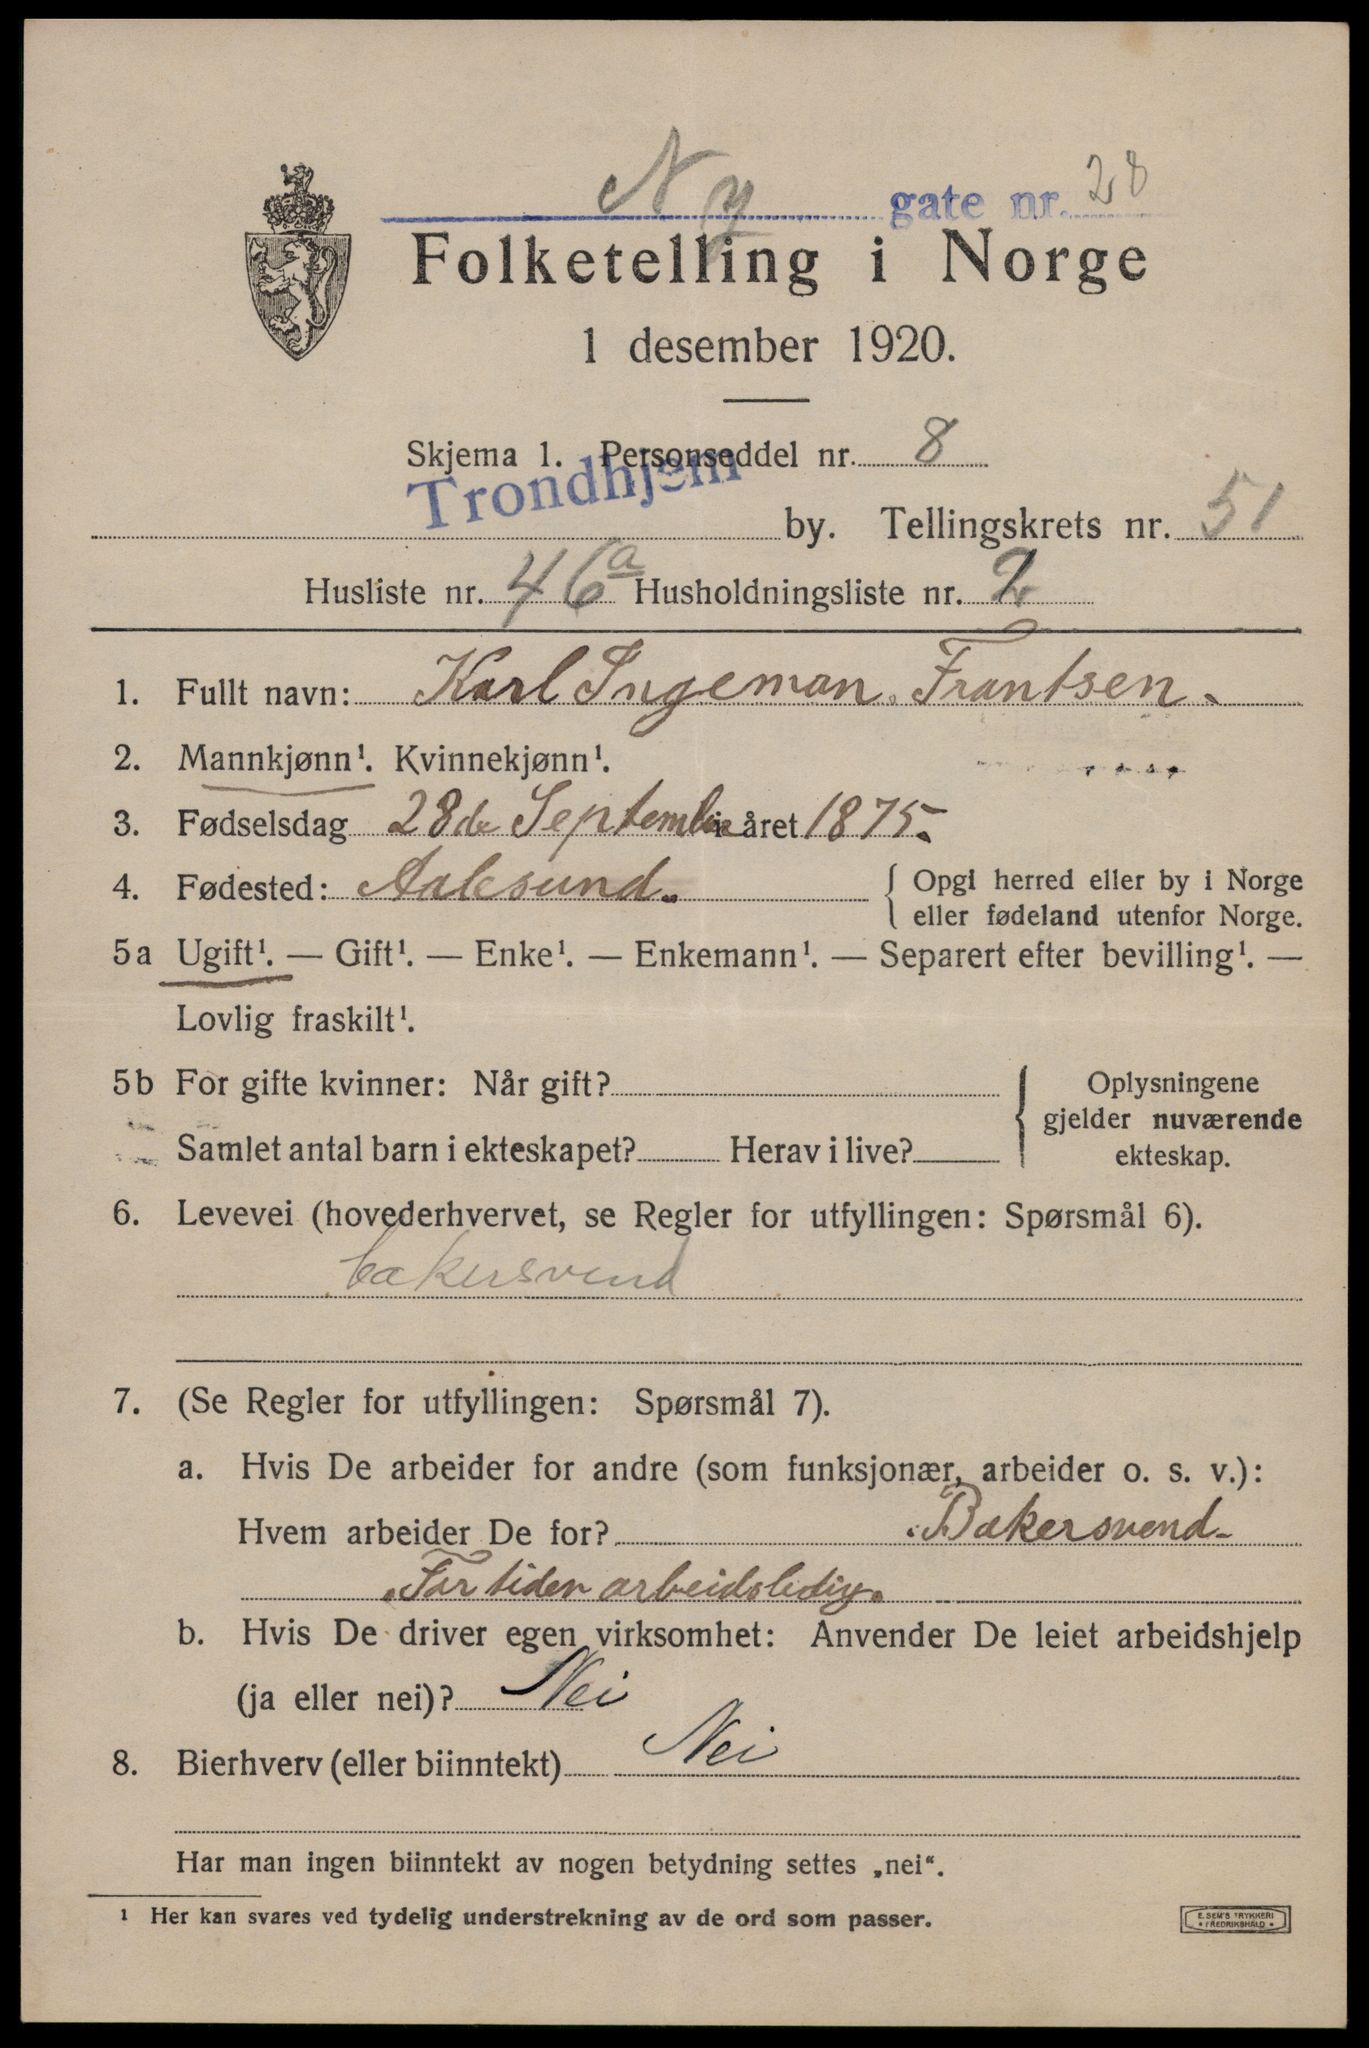 Ny gate nr. 28
Folketelling i Norge
1 desember 1920.
Skjema 1. Personseddel nr. 8
Trondhjem by. Tellingskrets nr. 51
Husliste nr. 46a Husholdningsliste nr. 2
1. Fullt navn: Karl Ingeman. Frantsen.
2. Mannkjønn¹. Kvinnekjønn¹.
3. Fødselsdag 28de September i året 1875.
4. Fødested: Aalesund. { Opgi herred eller by i Norge
eller fødeland utenfor Norge.
5a Ugift¹. — Gift¹. — Enke¹. — Enkemann¹. — Separert efter bevilling¹. —
Lovlig fraskilt¹.
5b For gifte kvinner: Når gift? { Oplysningene
gjelder nuværende
Samlet antal barn i ekteskapet? Herav i live? ekteskap.
6. Levevei (hovederhvervet, se Regler for utfyllingen: Spørsmål 6).
bakersvend
7. (Se Regler for utfyllingen: Spørsmål 7).
a. Hvis De arbeider for andre (som funksjonær, arbeider o. s. v.):
Hvem arbeider De for? Bakersvend-
For tiden arbeidsledig.
b. Hvis De driver egen virksomhet: Anvender De leiet arbeidshjelp
(ja eller nei)? Nei
8. Bierhverv (eller biinntekt) Nei
Har man ingen biinntekt av nogen betydning settes „nei“.
¹ Her kan svares ved tydelig understrekning av de ord som passer.
E. SEM'S TRYKKERI
• FREDRIKSHALD •